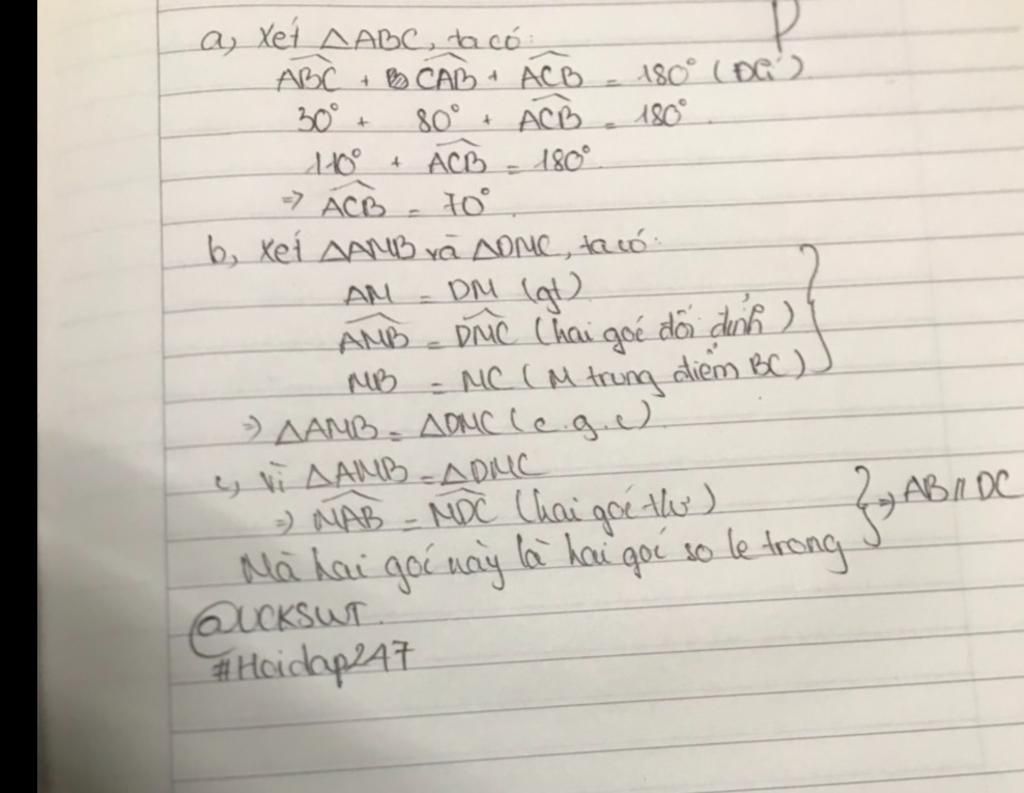 a, Xét △ABC, ta có:
ABC + CAB + ACB = 180° (ĐL)
30° + 80° + ACB = 180°
110° + ACB = 180°
=> ACB = 70°
b, Xét △AMB và △DMC, ta có:
AM = DM (gt)
AMB = DMC (hai góc đối đỉnh)
MB = MC (M trung điểm BC)
=> △AMB = △DMC (c.g.c)
c, Vì △AMB = △DMC
=> MAB = MDC (hai góc t/ư)
Mà hai góc này là hai góc so le trong
=> AB // DC
@UCKSWT
#Hoidap247